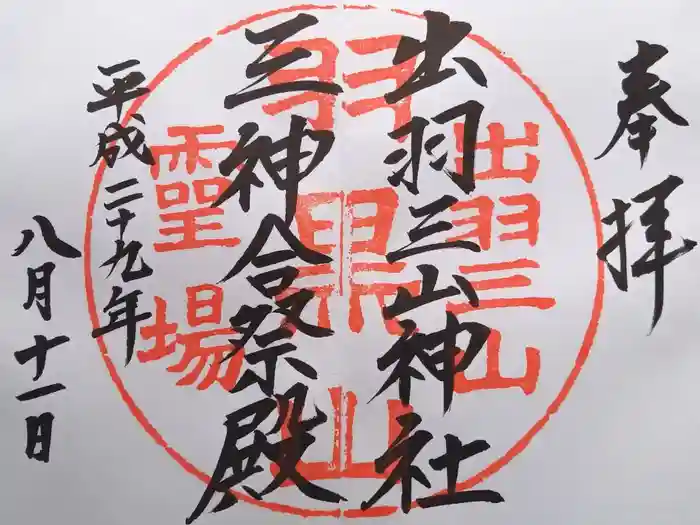 奉拝
出羽三山神社
三神合祭殿
平成二十九年
八月十一日
出羽三山
羽黒山
霊場